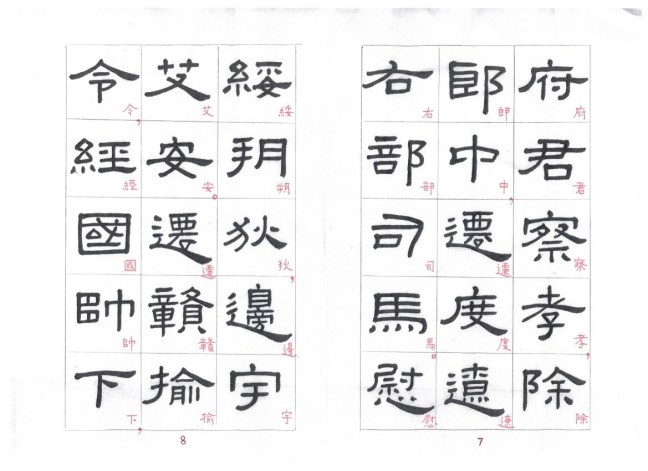 府君察孝除
府君察孝，除
郎中遷度遼
郎中，遷度遼
右部司馬慰
右部司馬。慰
7
綏朔狄邊宇
綏朔狄，邊宇
艾安遷贛揄
艾安。遷贛揄
令經國帥下
令，經國帥下，
8